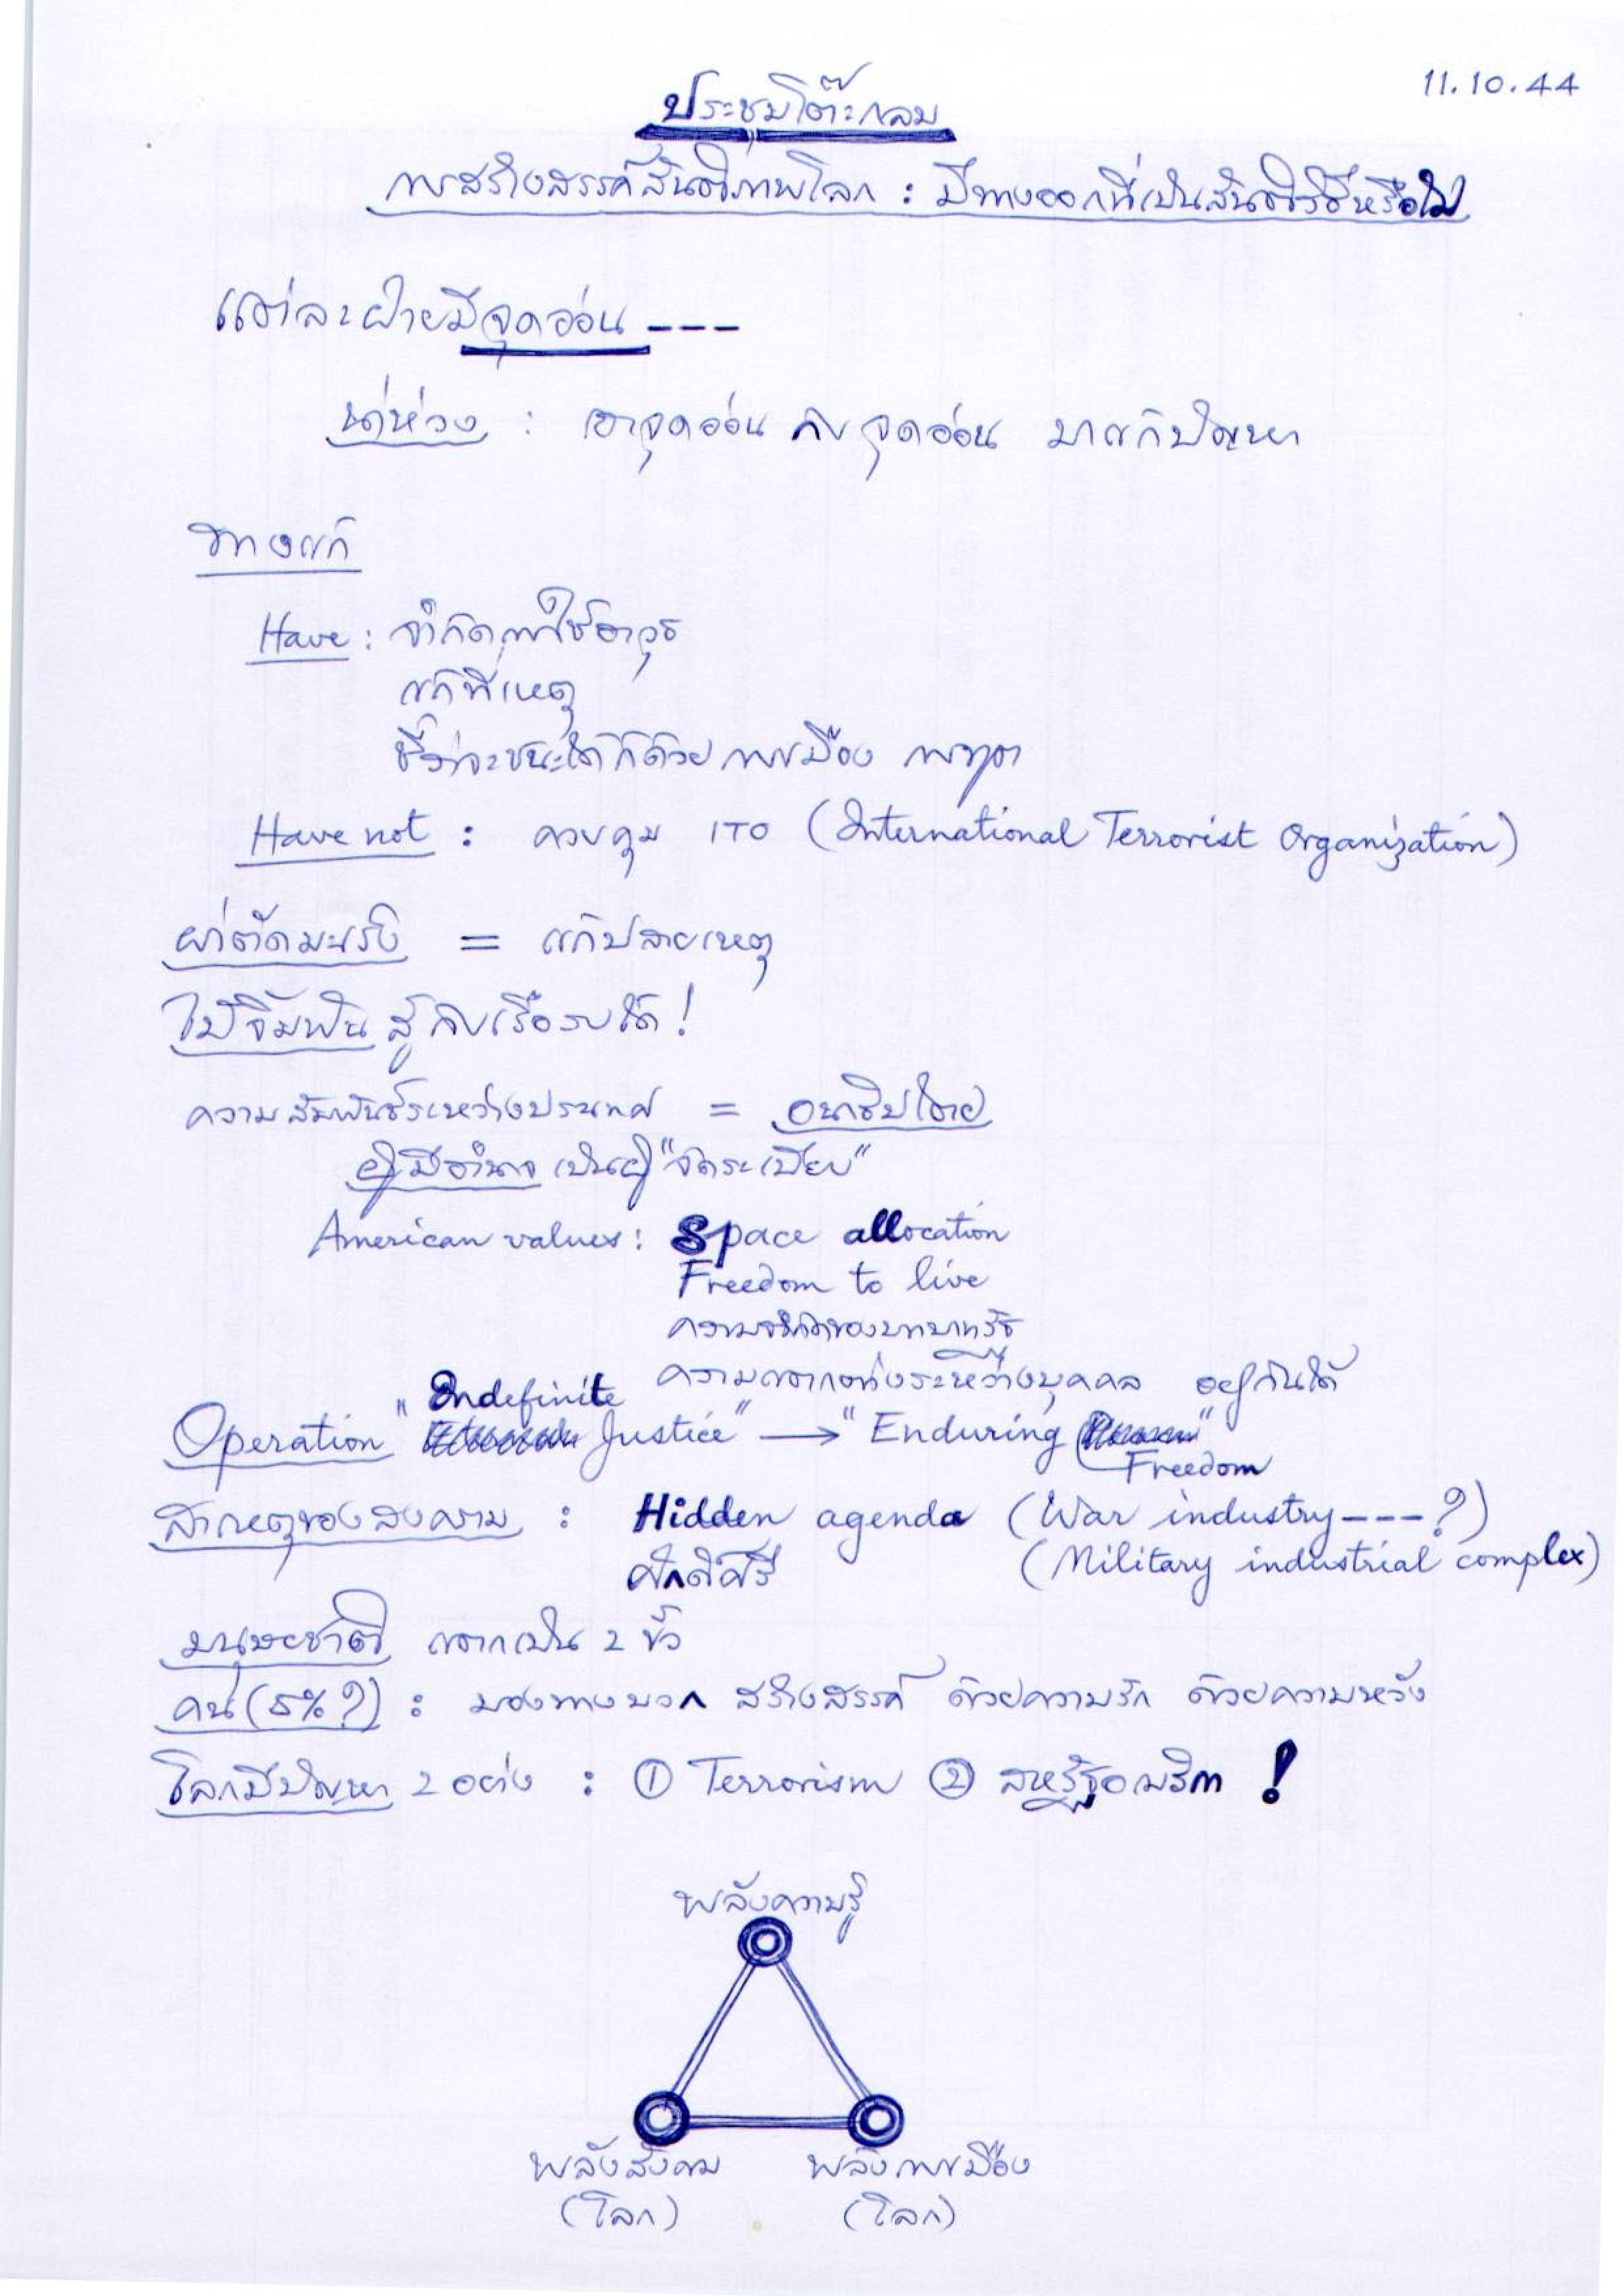 11.10.44
ประชุมโต๊ะกลม
การสร้างสรรค์สันติภาพโลก : มีทางออกที่เป็นสันติวิธีหรือไม่
แต่ละฝ่ายมีจุดอ่อน ---
น่าห่วง : เอาจุดอ่อน กับ จุดอ่อน มาแก้ปัญหา
ทางแก้
Have : จำกัดการใช้อาวุธ
แก้ที่เหตุ
ชี้ว่าจะชนะได้ก็ด้วย การเมือง การทูต
Have not : ควบคุม ITO (International Terrorist Organization)
ผ่าตัดมะเร็ง = แก้ปลายเหตุ
ไม้จิ้มฟัน สู้กับเรือรบได้ !
ความสัมพันธ์ระหว่างประเทศ = อนาธิปไตย
ผู้มีอำนาจ เป็นผู้ "จัดระเบียบ"
American values : Space allocation
Freedom to live
ความจำกัดของบทบาทรัฐ
ความแตกต่างระหว่างบุคคล อยู่กันได้
Operation "Indefinite Justice" → "Enduring Freedom"
สาเหตุของสงคราม : Hidden agenda (War industry --- ?)
ศักดิ์ศรี (Military industrial complex)
มนุษยชาติ แตกเป็น 2 ขั้ว
คน (5% ?) : มองทางบวก สร้างสรรค์ ด้วยความรัก ด้วยความหวัง
โลกมีปัญหา 2 อย่าง : ① Terrorism ② สหรัฐอเมริกา !
พลังความรู้
พลังสังคม พลังการเมือง
(โลก) (โลก)